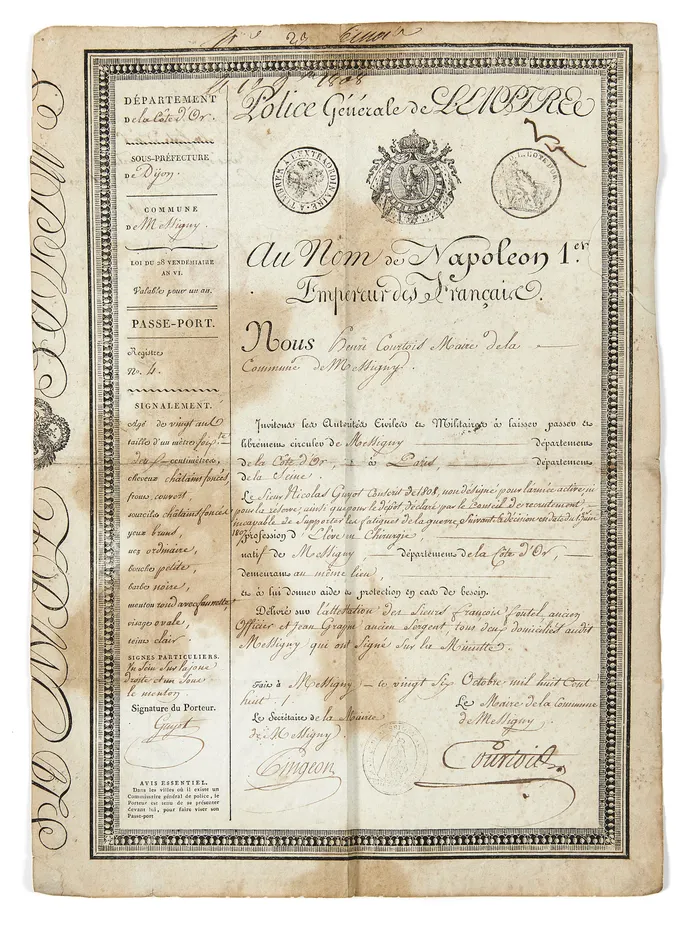 1808
DÉPARTEMENT
De la Côte d'Or.
SOUS-PRÉFECTURE
DE Dijon.
COMMUNE
DE Messigny.
LOI DU 28 VENDEMIAIRE
AN VI.
Valables pour un an.
PASSE-PORT.
Registre
No. 4.
SIGNALEMENT.
Agé de vingt ans
taille d'un mètre
centimètres
cheveux châtains foncés
front, couvert,
sourcils châtains foncés
yeux bruns,
nez ordinaire,
bouche petite,
barbe noire,
menton rond avec fausette
visage ovale,
teint clair.
SIGNES PARTICULIERS.
Un Sein Sur la joue
droite et un Sous
le menton.
Signature du Porteur.
Guyot
AVIS ESSENTIEL.
Dans les villes où il existe un
Commissaire général de police, le
Porteur est tenu de se présenter
devant lui, pour faire viser son
Passe-port
Police Générale de L'EMPIRE
A TIMBRER A L'EXTRAORDINAIRE
COTE D'OR
Au Nom de Napoleon 1.er
Empereur des Français.
Nous Henri Courtois Maire de la
Commune de Messigny.
Invitons les Autorités Civiles & Militaires à laisser passer et
librement circuler de Messigny département
de la Côte d'Or, à Paris, département
de la Seine.
Le Sieur Nicolas Guyot Conscrit de 1808, non désigné pour l'armée active, ni
pour la réserve, ainsi que pour le dépôt, déclaré par le Conseil de recrutement
incapable de Supporter les fatigues de la guerre, Suivant la décision en date du
1807
profession d'Elève en Chirurgie.
natif de Messigny département de la Côte d'Or,
demeurant au même lieu,
et à lui donner aide & protection en cas de besoin.
Délivré sur l'attestation des Sieurs François ancien
Officier et Jean ancien Sergent, tous deux domiciliés audit
Messigny qui ont Signé Sur la Minutte.
Fait à Messigny le vingt Six Octobre mil huit Cent
huit.
Le Secrétaire de la Mairie
de Messigny.
Le Maire de la Commune
de Messigny.
Courtois